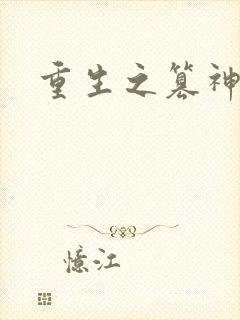 重生之篡神
憶江